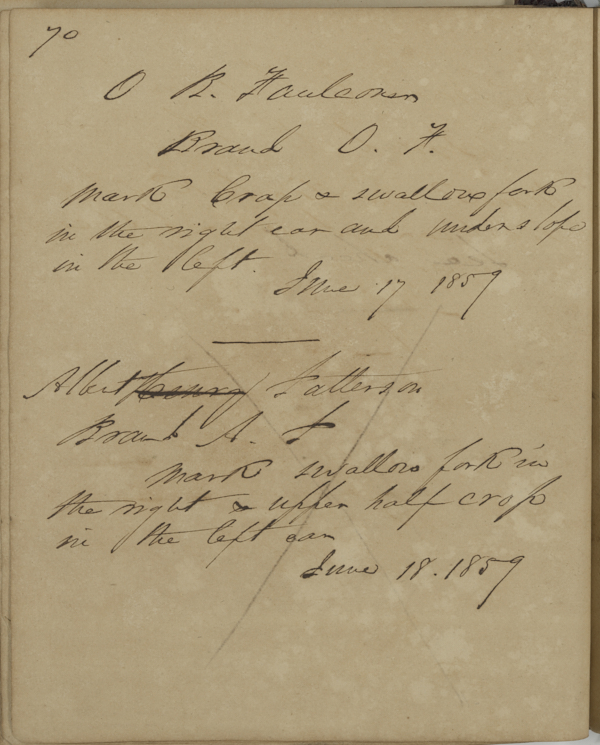 70
O B. Faulconer
Brand O. F.
Mark Crop & swallow fork
in the right ear and underslope
in the left.
June 17 1859
Albert Henry Patterson
Brand A. P
Mark swallow fork in
the right & upper half crop
in the left ear
June 18. 1859